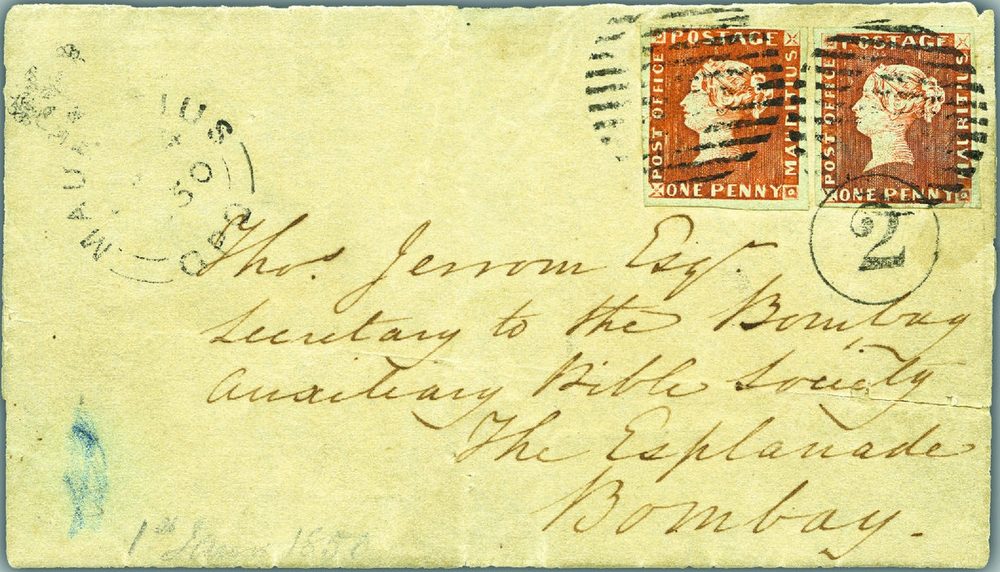 POSTAGE
POST OFFICE
MAURITIUS
ONE PENNY
POSTAGE
POST OFFICE
MAURITIUS
ONE PENNY
2
MAURITIUS
GPO
Thos. Jerrom Esqr.
Secretary to the Bombay
Auxiliary Bible Society
The Esplanade
Bombay.
1850